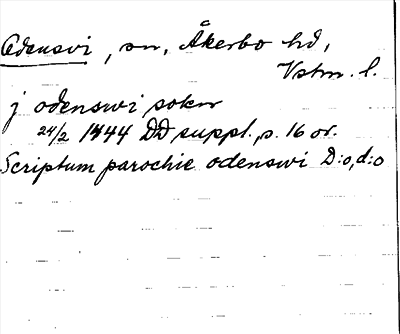 Odensvi, sn, Åkerbo hd,
Vstm. l.
j odenswi sokn
24/2 1444 DD suppl., s. 16 or.
Scriptum parochie odenswi D:o, d:o